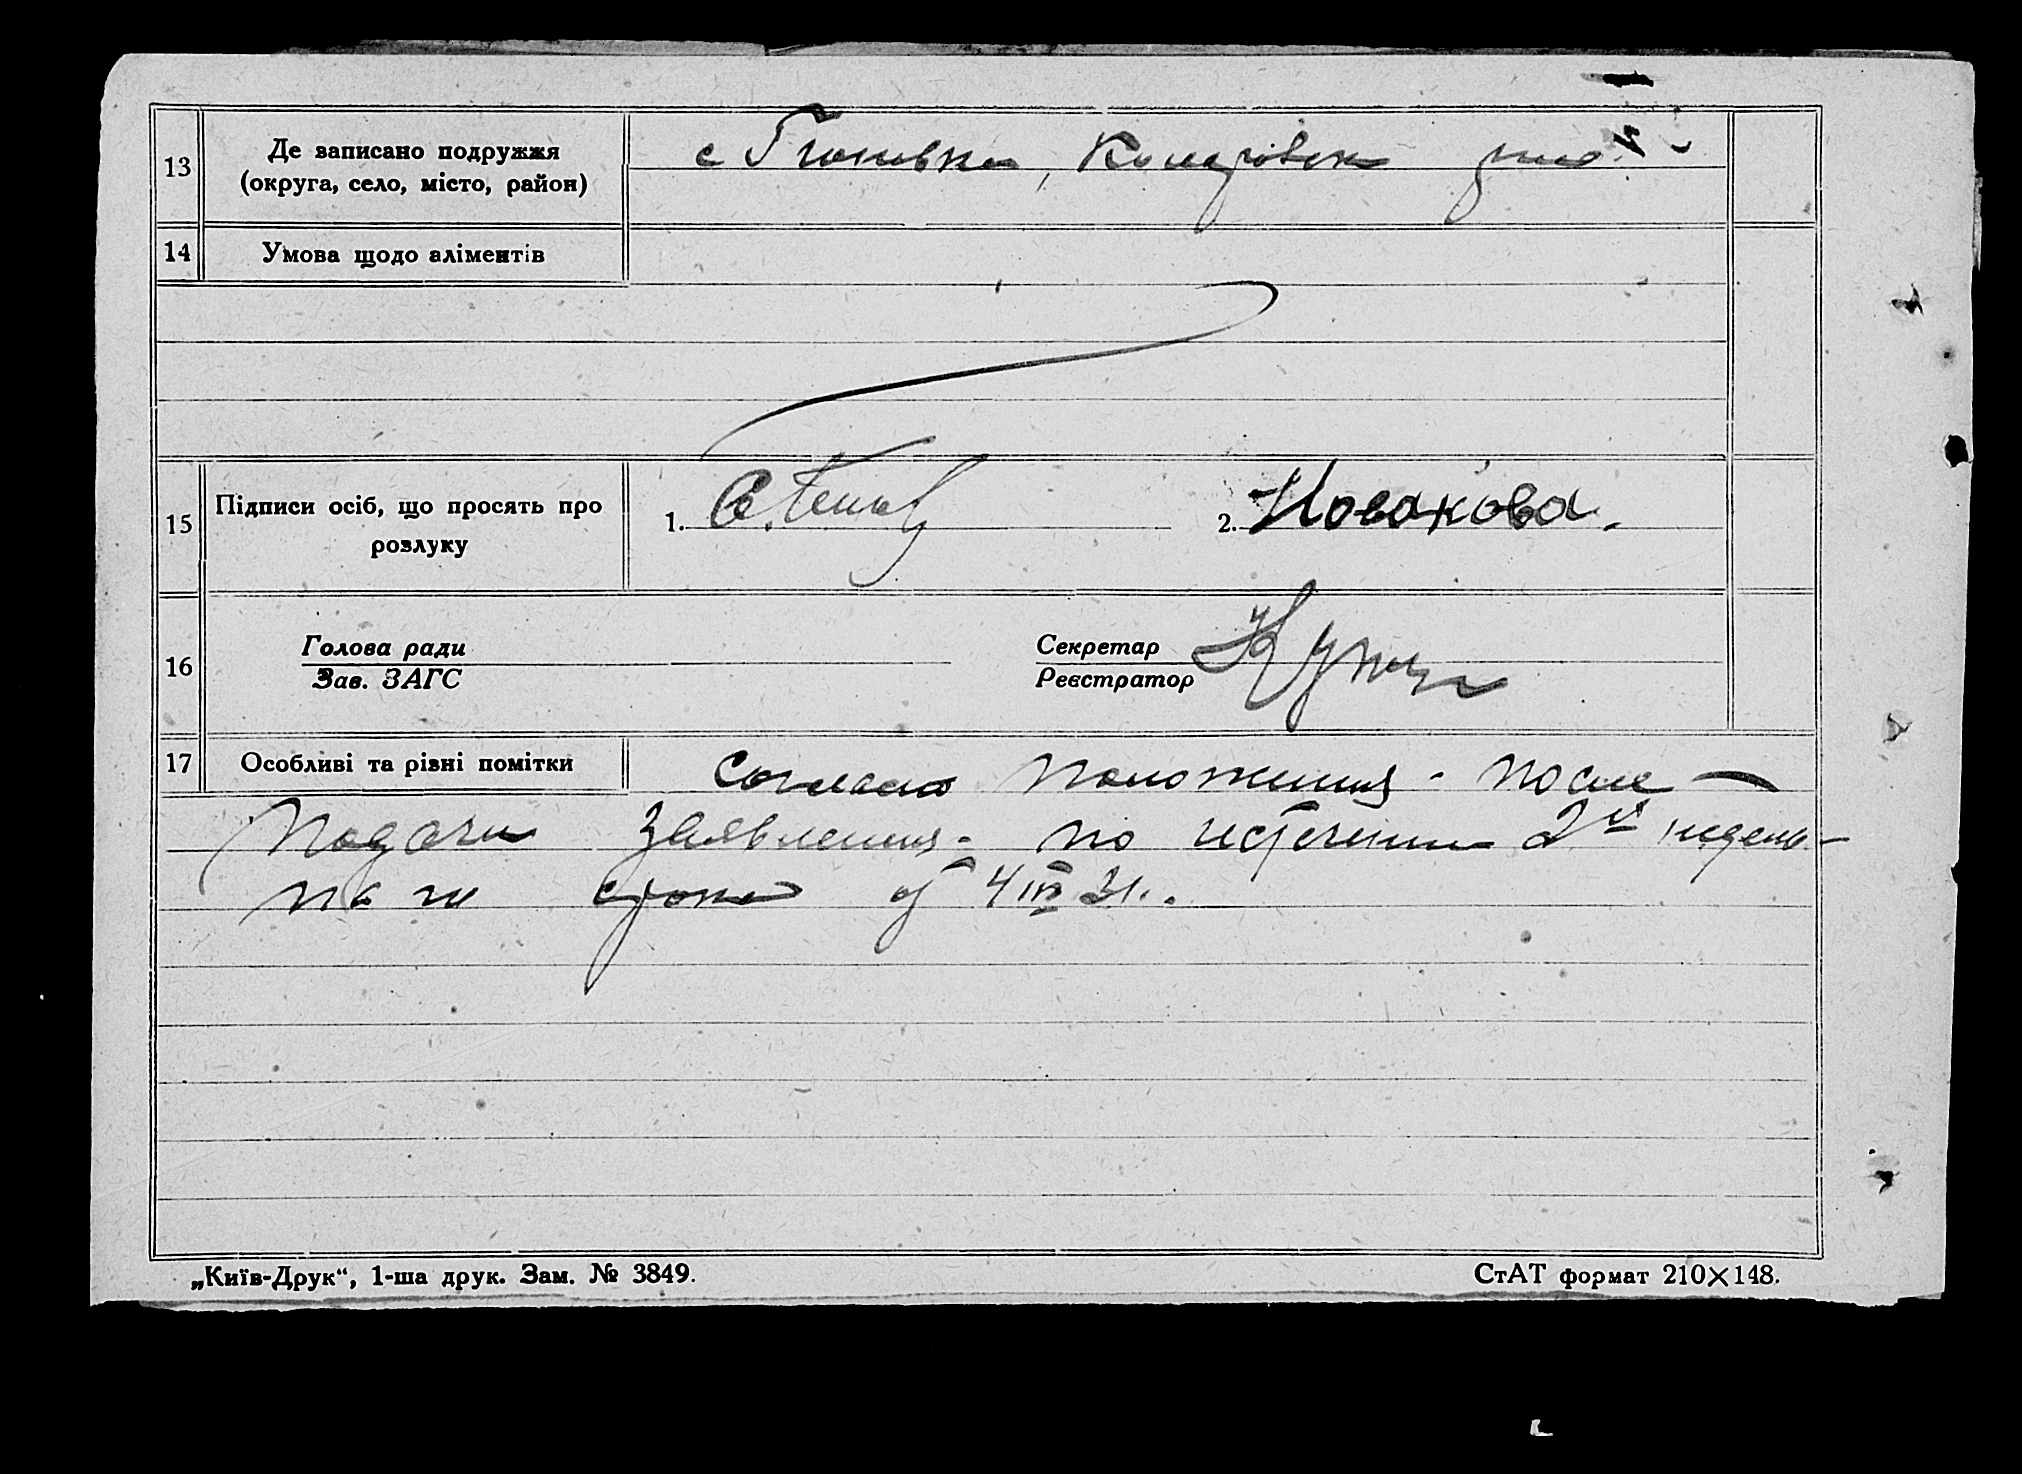 13 Де записано подружжя
(округа, село, місто, район)
14 Умова щодо аліментів
15 Підписи осіб, що просять про
розлуку
1. 2. Новакова.
16 Голова ради Секретар
Зав. ЗАГС Реєстратор
17 Особливі та різні помітки Согласно положения - после
подачи заявления - по истечении 2й недель-
срока 4 III 31.
„Київ-Друк“, 1-ша друк. Зам. № 3849. СтАТ формат 210×148.